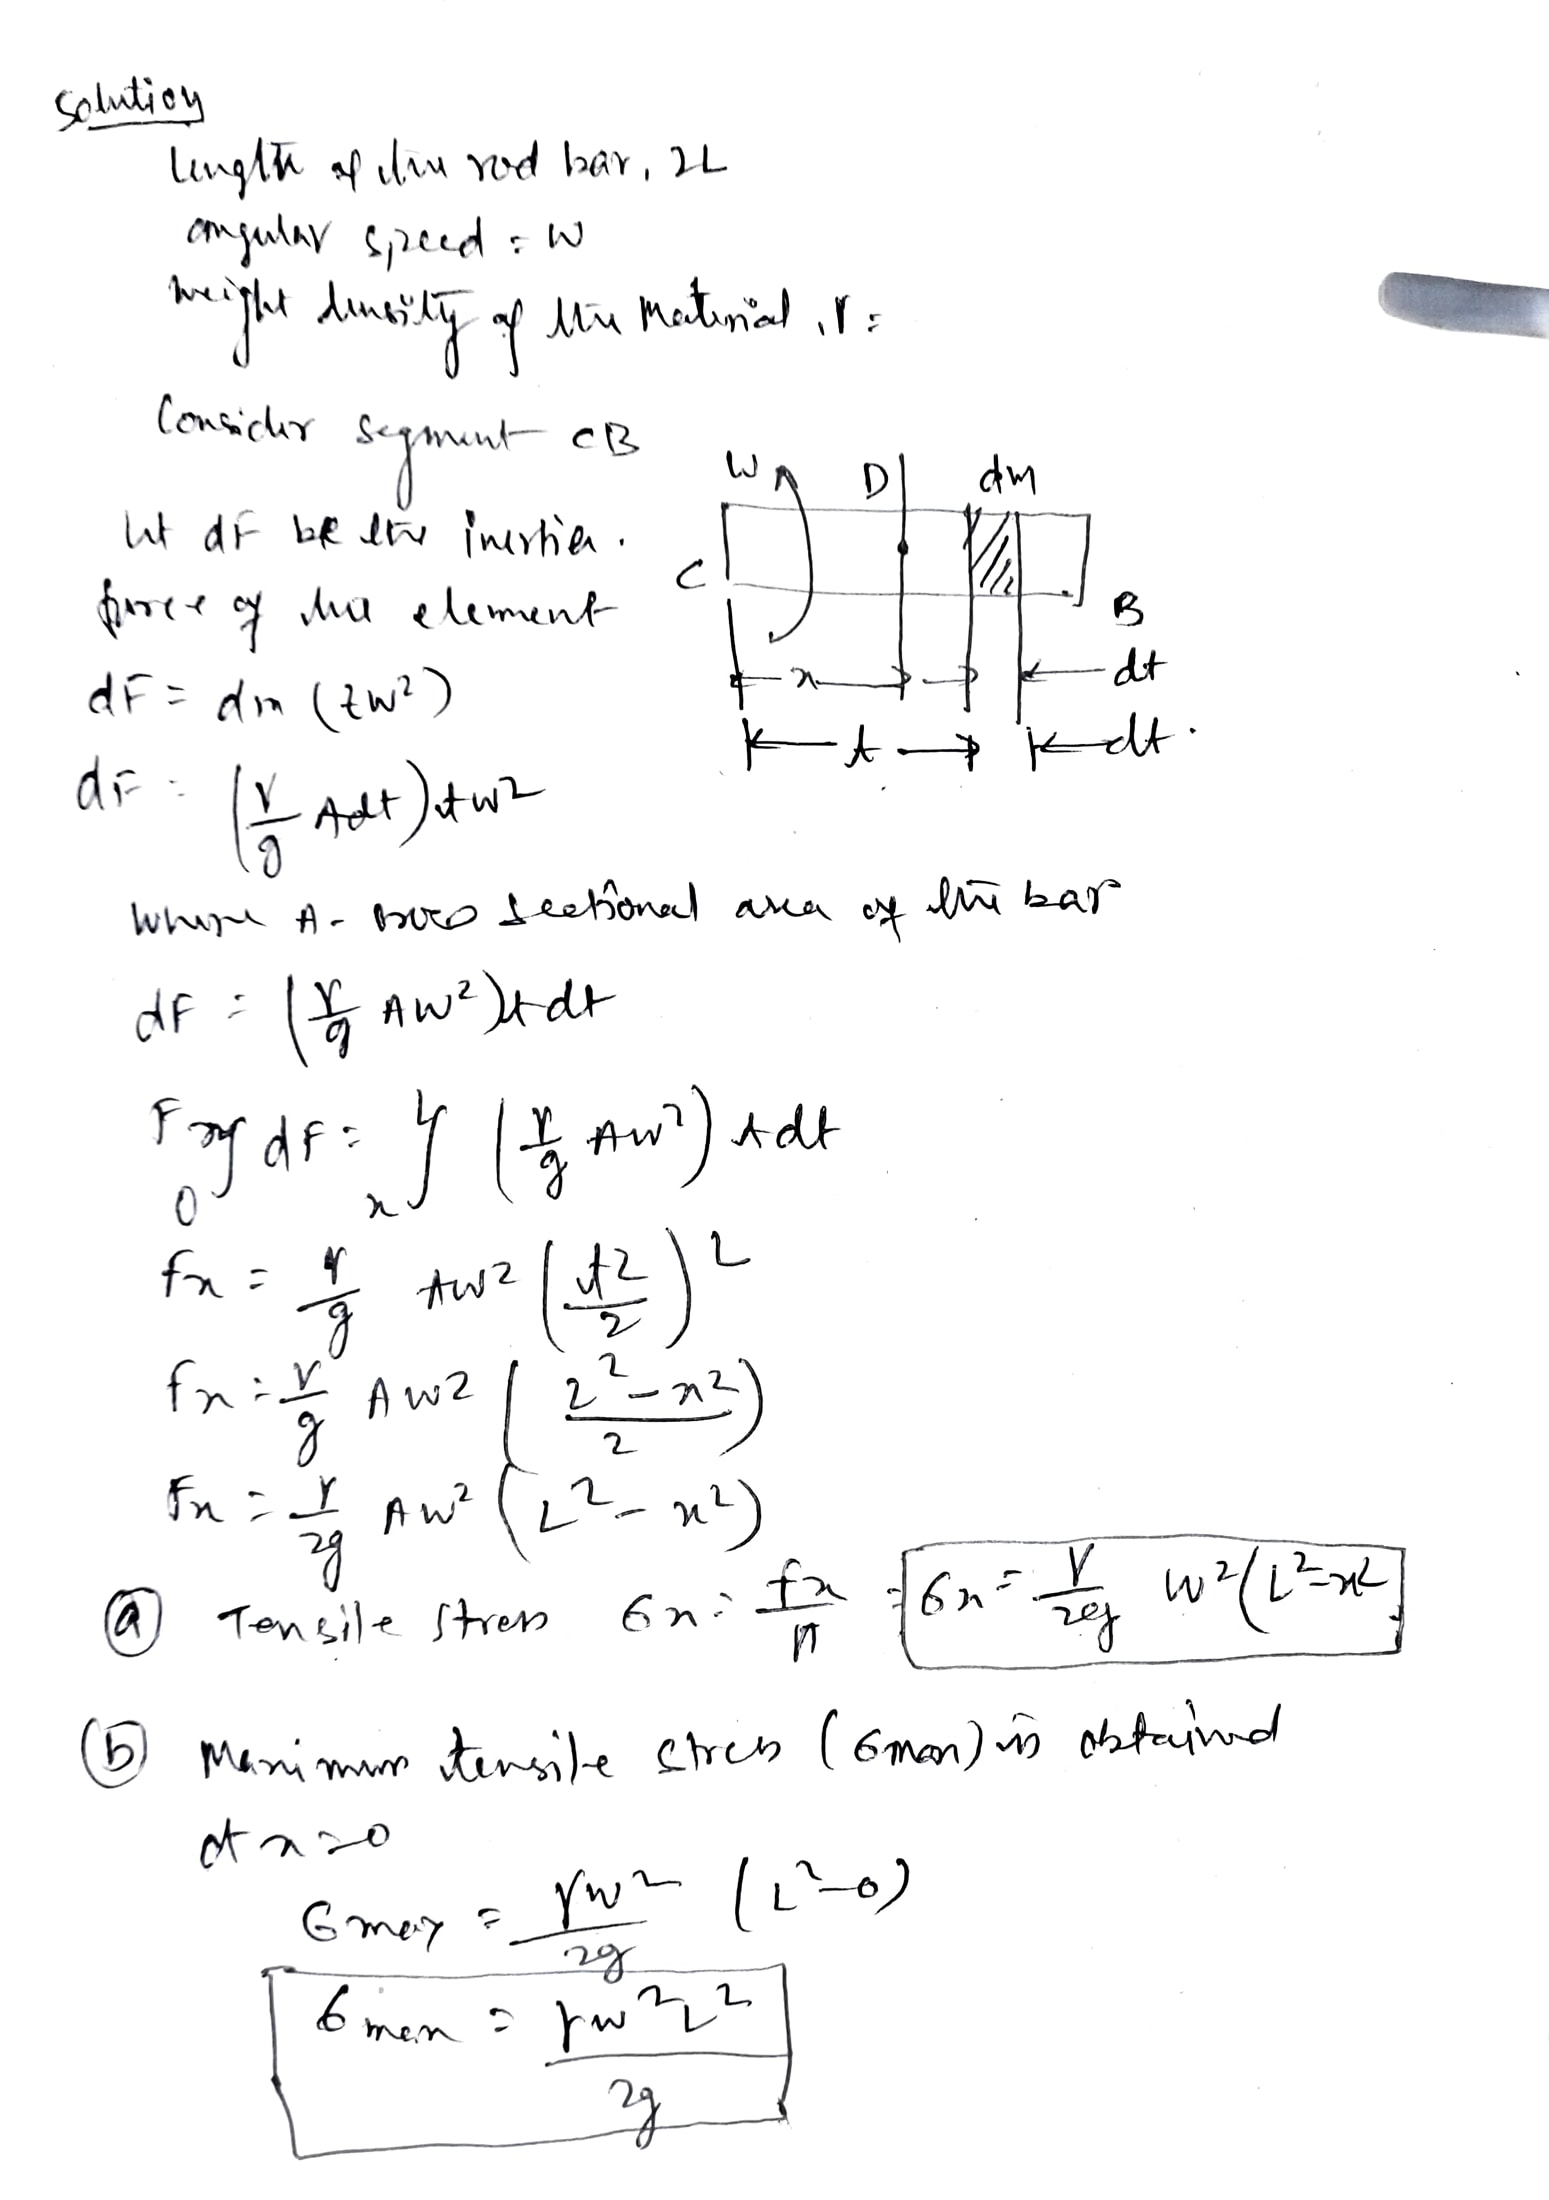 Solution
length of the rod bar, 2L
angular speed = W
weight density of the material, γ =
Consider segment CB
let dF be the inertia.
force of the element
dF = dm (tw²)
dF = (γ/g Adt) tw²
W D dm
C
B
x dt
t dt.
where A - cross sectional area of the bar
dF = (γ/g AW²) t dt
F 0 ∫ dF = x ∫ L (γ/g AW²) t dt
fx = γ/g AW² (t²/2) L
fx = γ/g AW² (L² - x²/2)
Fx = γ/2g AW² (L² - x²)
(a) Tensile stress σx = fx/A = σx = γ/2g W² (L² - x²
(b) Maximum tensile stress (σmax) is obtained
at x = 0
σmax = γw²/2g (L² - 0)
σmax = γw²L²/2g